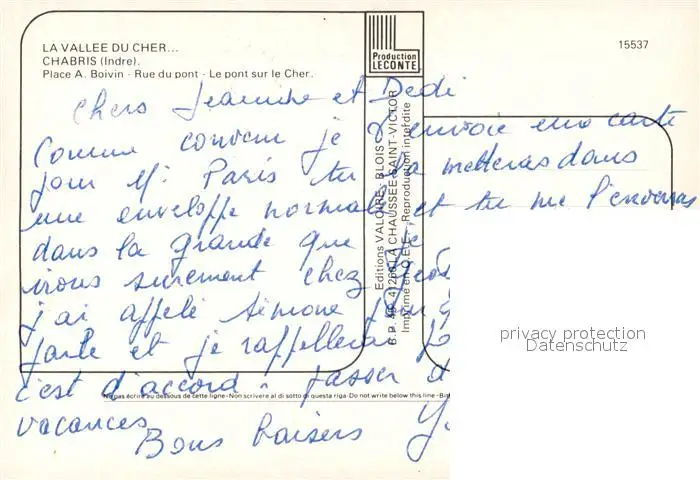 LA VALLEE DU CHER...
CHABRIS (Indre).
Place A. Boivin - Rue du pont - Le pont sur le Cher.
Production
LECONTE
15537
Chers Jeannine et Dedi
Comme convenu je t'envoie une carte
pour M. Paris tu la metteras dans
une enveloppe normale et tu me l'enverras
dans la grande que je
irons surement chez
j'ai appelé Simone pour
faite et je rappellerai
c'est d'accord. Passer de
vacances
Bons baisers
Editions VALOIRE - BLOIS
41260 LA CHAUSSEE-SAINT-VICTOR
Imprimé en C.E.E. - Reproduction interdite
N'pas écrire au dessous de cette ligne - Non scrivere al di sotto di questa riga - Do not write below this line -
privacy protection
Datenschutz